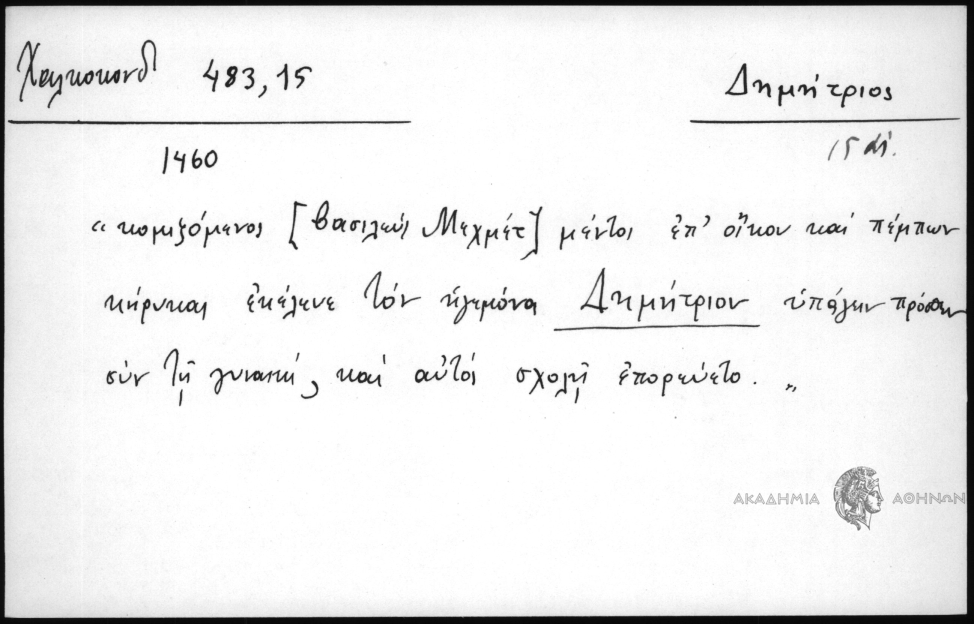 Χαλκοκονδ 483,15
Δημήτριος
1460
15 αἰ.
« κομιζόμενος [βασιλεύς Μεχμέτ] μέντοι ἐπ' οἴκου καί πέμπων
κήρυκας ἐκέλευε τόν ἡγεμόνα Δημήτριον ὑπάγειν πρόσθεν
σύν τῇ γυναικί, καί αὐτός σχολῇ ἐπορεύετο. »
ΑΚΑΔΗΜΙΑ ΑΘΗΝΩΝ